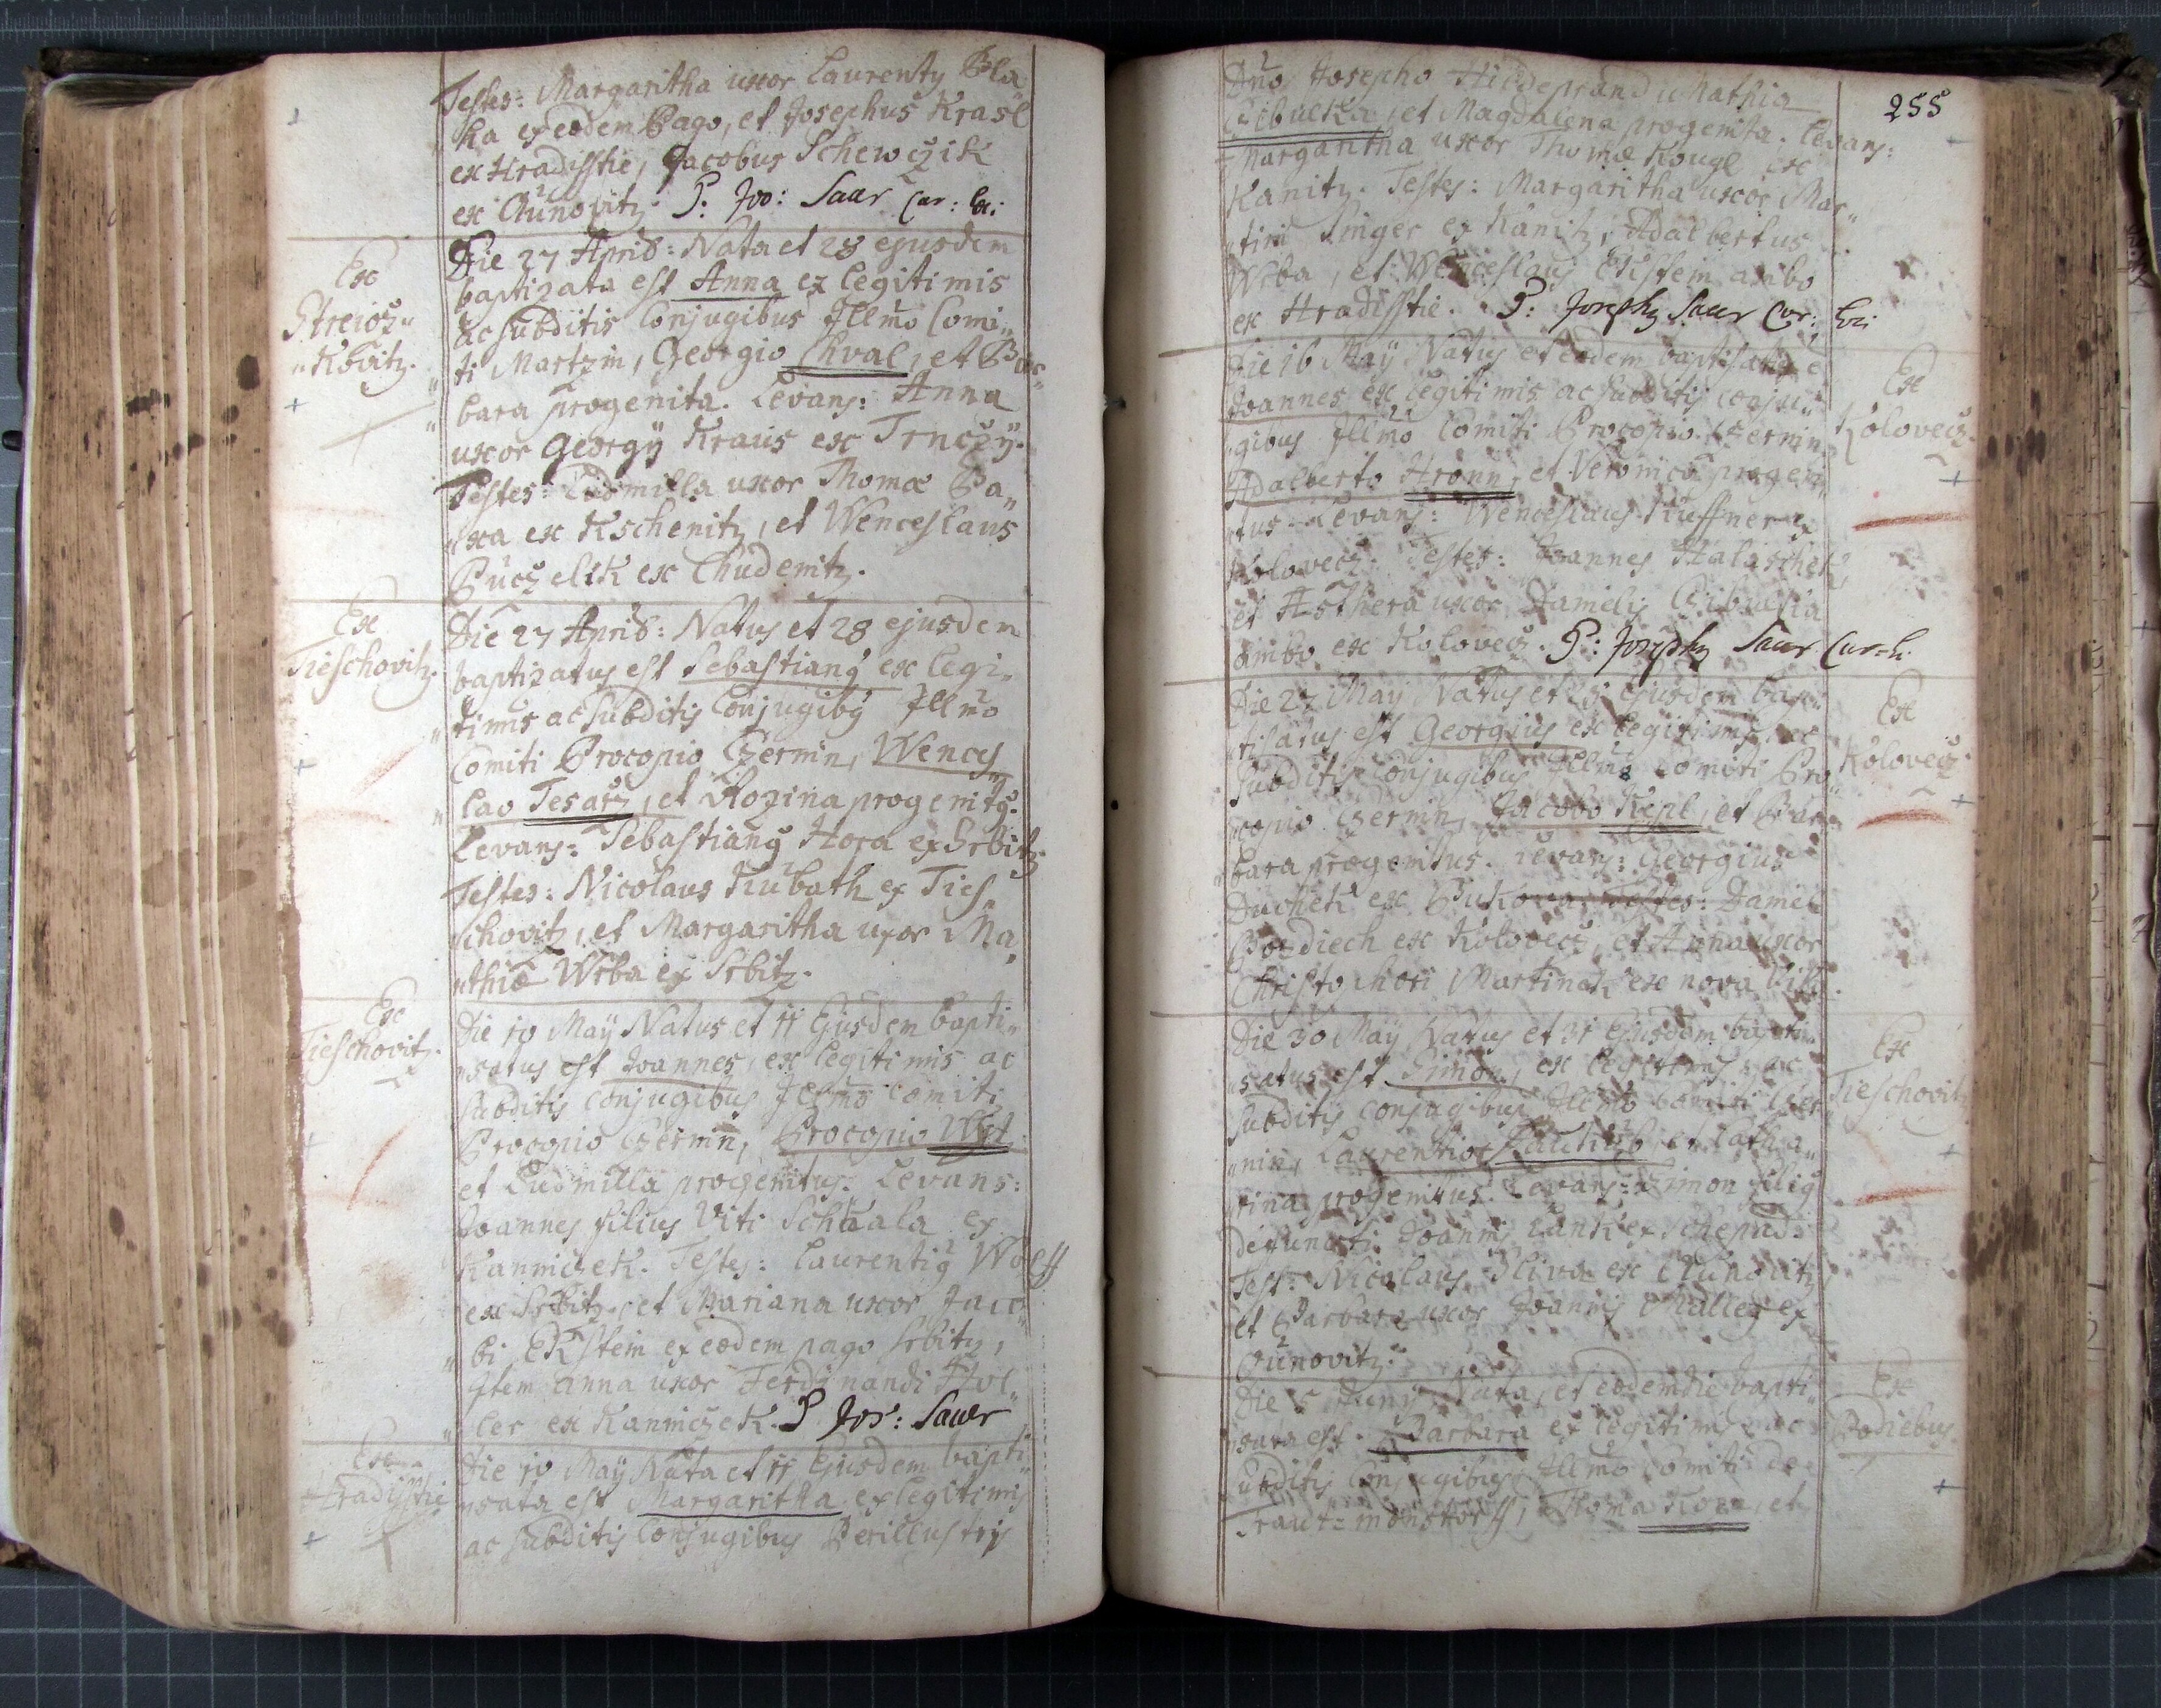 Testes: Margaritha uxor Laurenty Bla
"ha ex eodem Pago, et Josephus Krasl
ex Hradisstie, Jacobus Schewczik
ex Chunovitz. P. Jos: Saur Cur: lci:
Ex
Streicz„
„Kovitz.
Die 27 April: Nata et 28 ejusdem
baptizata est Anna ex legitimis
ac subditis Conjugibus Illmo Comi„
ti Martzin, Georgio Chval, et Bar„
"bara progenita. Levans: Anna
uxor Georgÿ Kraus ex Trnczÿ.
Testes: Ludmilla uxor Thomæ Pa„
"xa ex Kschenitz, et Wenceslaus
Puczelik ex Chudenitz.
Ex
Tieschovitz.
Die 27 April: Natus et 28 ejusdem
baptizatus est Sebastianus ex legi„
"timis ac subditis Conjugibus Illmo
Comiti Procopio Czernin, Wences„
"lao Tesarz, et Rozina progenitus.
Levans: Sebastianus Hora ex Srbitz
Testes: Nicolaus Kubath ex Ties„
schovitz, et Margaritha uxor Ma„
"thiæ Wrba ex Srbitz.
Ex
Tieschovitz.
Die 10 Maÿ Natus et 11 Ejusdem bapti„
"satus est Joannes, ex legitimis ac
subditis Conjugibus Illmo Comiti
Procopio Czernin, Procopio
et Ludmilla progenitus. Levans:
Joannes filius Viti ex
Kanniczek. Testes: Laurentius Wolff
ex Srbitz, et Mariana uxor Jaco„
"bi Ekstein ex eodem pago Srbitz,
Item Anna uxor Ferdinandi Hol„
"ler ex Kanniczek. P Jos: Sauer
Ex
Hradisstie
Die 10 Maÿ Nata et 11 Ejusdem bapti„
"sata est Margaritha ex legitimis
ac subditis Conjugibus Perillustris
255
Dno Josepho Hildeprand Mathia
Czibulka, et Magdalena progenita. Levans:
Margaritha uxor Thomæ Kougl ex
Kanitz. Testes: Margaritha uxor Mar„
"tini Singer ex Kanitz, Adalbertus
Wrba, et Wenceslaus Ekstein ambo
ex Hradisstie. P: Josephus Saur Cur: loci
Ex
Kolovecz.
Die 16 Maÿ Natus et eodem baptisatus e
Joannes ex legitimis ac subditis conju„
"gibus Illmo Comiti Procopio Czernin,
Adalberto Hronn, et Veronica progeni„
"tus. Levans: Wenceslaus Kuffner ex
Kolovecz. Testes: Joannes Halaschek,
et Asthera uxor Danielis Czibulka
ambo ex Kolovecz. P: Josephus Saur Cur: l.
Ex
Kolovecz
Die 27 Maÿ Natus et 28 Ejusdem bap„
"tisatus est Georgius ex legitimis ac
subditis Conjugibus Illmo Comiti Pro„
"copio Czernin, Jacobo Kepl, et Bar„
"bara progenitus. Levans: Georgius
Duchek ex Bukowa. Testes: Daniel
Pozdiech ex Kolovecz, et Anna uxor
Christophori Martinek ex nova Villa.
Ex
Tieschovitz
Die 30 Maÿ Natus et 31 Ejusdem bapti„
"satus est Simon, ex legitimis ac
subditis conjugibus Illmo Comiti Czer„
"nin, Laurentio, et Catha„
"rina progenitus. Levans: Simon filius
defuncti Joannis ex
Test: Nicolaus Sliva ex Chunovitz
et Barbara uxor Joannis ex
Chunovitz.
Ex
Podiebus
Die 5 Junÿ Nata, et eodem die bapti„
"sata est Barbara ex legitimis ac
subditis Conjugibus Illmo Comiti de
Trautzmonstorff, Thoma et